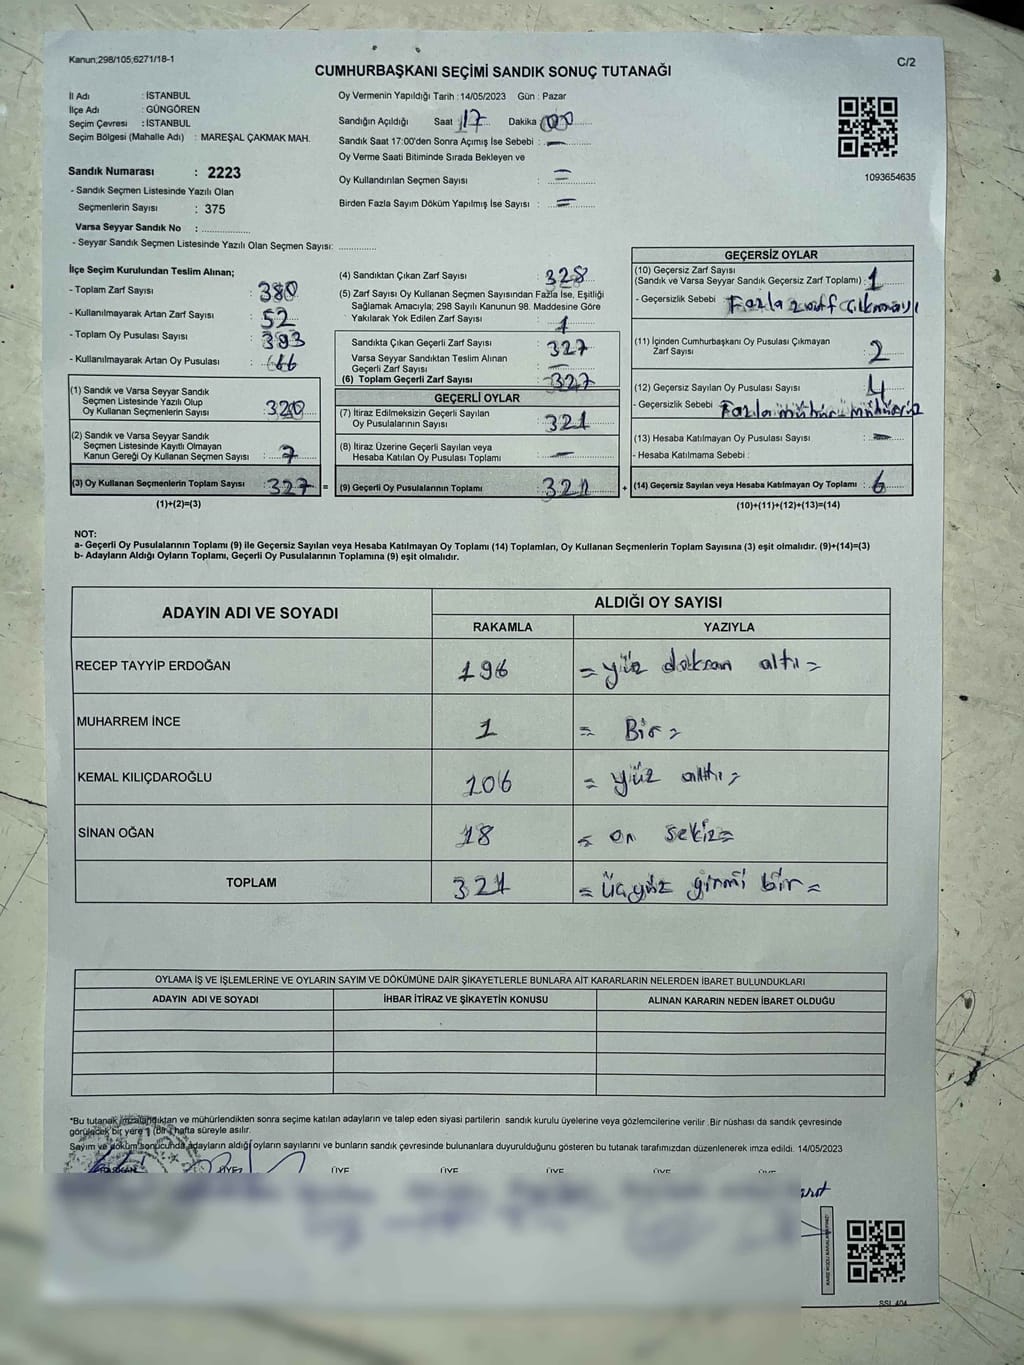 Kanun;298/105;6271/18-1
C/2
CUMHURBAŞKANI SEÇİMİ SANDIK SONUÇ TUTANAĞI
İl Adı : İSTANBUL
İlçe Adı : GÜNGÖREN
Seçim Çevresi : İSTANBUL
Seçim Bölgesi (Mahalle Adı) : MAREŞAL ÇAKMAK MAH.
Sandık Numarası : 2223
- Sandık Seçmen Listesinde Yazılı Olan
Seçmenlerin Sayısı : 375
Varsa Seyyar Sandık No :
- Seyyar Sandık Seçmen Listesinde Yazılı Olan Seçmen Sayısı:
Oy Vermenin Yapıldığı Tarih : 14/05/2023 Gün : Pazar
Sandığın Açıldığı Saat 17 Dakika 00
Sandık Saat 17:00'den Sonra Açımış İse Sebebi : —
Oy Verme Saati Bitiminde Sırada Bekleyen ve
Oy Kullandırılan Seçmen Sayısı : =
Birden Fazla Sayım Döküm Yapılmış İse Sayısı : =
1093654635
İlçe Seçim Kurulundan Teslim Alınan;
- Toplam Zarf Sayısı : 380
- Kullanılmayarak Artan Zarf Sayısı : 52
- Toplam Oy Pusulası Sayısı : 393
- Kullanılmayarak Artan Oy Pusulası : 66
(1) Sandık ve Varsa Seyyar Sandık
Seçmen Listesinde Yazılı Olup
Oy Kullanan Seçmenlerin Sayısı : 320
(2) Sandık ve Varsa Seyyar Sandık
Seçmen Listesinde Kayıtlı Olmayan
Kanun Gereği Oy Kullanan Seçmen Sayısı : 7
(3) Oy Kullanan Seçmenlerin Toplam Sayısı : 327 =
(1)+(2)=(3)
(4) Sandıktan Çıkan Zarf Sayısı : 328
(5) Zarf Sayısı Oy Kullanan Seçmen Sayısından Fazla İse, Eşitliği
Sağlamak Amacıyla; 298 Sayılı Kanunun 98. Maddesine Göre
Yakılarak Yok Edilen Zarf Sayısı : 1
Sandıkta Çıkan Geçerli Zarf Sayısı : 327
Varsa Seyyar Sandıktan Teslim Alınan
Geçerli Zarf Sayısı : —
(6) Toplam Geçerli Zarf Sayısı : 327
GEÇERLİ OYLAR
(7) İtiraz Edilmeksizin Geçerli Sayılan
Oy Pusulalarının Sayısı : 321
(8) İtiraz Üzerine Geçerli Sayılan veya
Hesaba Katılan Oy Pusulası Toplamı : —
(9) Geçerli Oy Pusulalarının Toplamı : 321 +
GEÇERSİZ OYLAR
(10) Geçersiz Zarf Sayısı
(Sandık ve Varsa Seyyar Sandık Geçersiz Zarf Toplamı) : 1
- Geçersizlik Sebebi : Fazla zarf çıkması
(11) İçinden Cumhurbaşkanı Oy Pusulası Çıkmayan
Zarf Sayısı : 2
(12) Geçersiz Sayılan Oy Pusulası Sayısı : 4
- Geçersizlik Sebebi : Fazla mühür mühürsüz
(13) Hesaba Katılmayan Oy Pusulası Sayısı : —
- Hesaba Katılmama Sebebi :
(14) Geçersiz Sayılan veya Hesaba Katılmayan Oy Toplamı : 6
(10)+(11)+(12)+(13)=(14)
NOT:
a- Geçerli Oy Pusulalarının Toplamı (9) ile Geçersiz Sayılan veya Hesaba Katılmayan Oy Toplamı (14) Toplamları, Oy Kullanan Seçmenlerin Toplam Sayısına (3) eşit olmalıdır. (9)+(14)=(3)
b- Adayların Aldığı Oyların Toplamı, Geçerli Oy Pusulalarının Toplamına (9) eşit olmalıdır.
ADAYIN ADI VE SOYADI
ALDIĞI OY SAYISI
RAKAMLA YAZIYLA
RECEP TAYYİP ERDOĞAN 196 = yüz doksan altı =
MUHARREM İNCE 1 = Bir =
KEMAL KILIÇDAROĞLU 106 = yüz altı =
SİNAN OĞAN 18 = on sekiz =
TOPLAM 321 = üçyüz yirmi bir =
OYLAMA İŞ VE İŞLEMLERİNE VE OYLARIN SAYIM VE DÖKÜMÜNE DAİR ŞİKAYETLERLE BUNLARA AİT KARARLARIN NELERDEN İBARET BULUNDUKLARI
ADAYIN ADI VE SOYADI İHBAR İTİRAZ VE ŞİKAYETİN KONUSU ALINAN KARARIN NEDEN İBARET OLDUĞU
*Bu tutanak imzalandıktan ve mühürlendikten sonra seçime katılan adayların ve talep eden siyasi partilerin sandık kurulu üyelerine veya gözlemcilerine verilir .Bir nüshası da sandık çevresinde
görülecek bir yere 1 (Bir) hafta süreyle asılır.
Sayım ve döküm sonucunda adayların aldığı oyların sayılarını ve bunların sandık çevresinde bulunanlara duyurulduğunu gösteren bu tutanak tarafımızdan düzenlenerek imza edildi. 14/05/2023
BAŞKAN ÜYE ÜYE ÜYE ÜYE ÜYE ÜYE
SSL 404